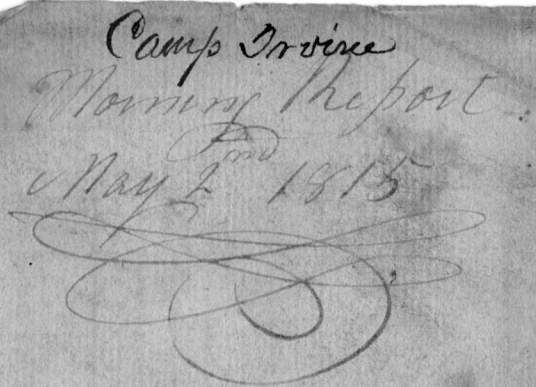 Camp Irvine
Morning Report
May 2nd 1815